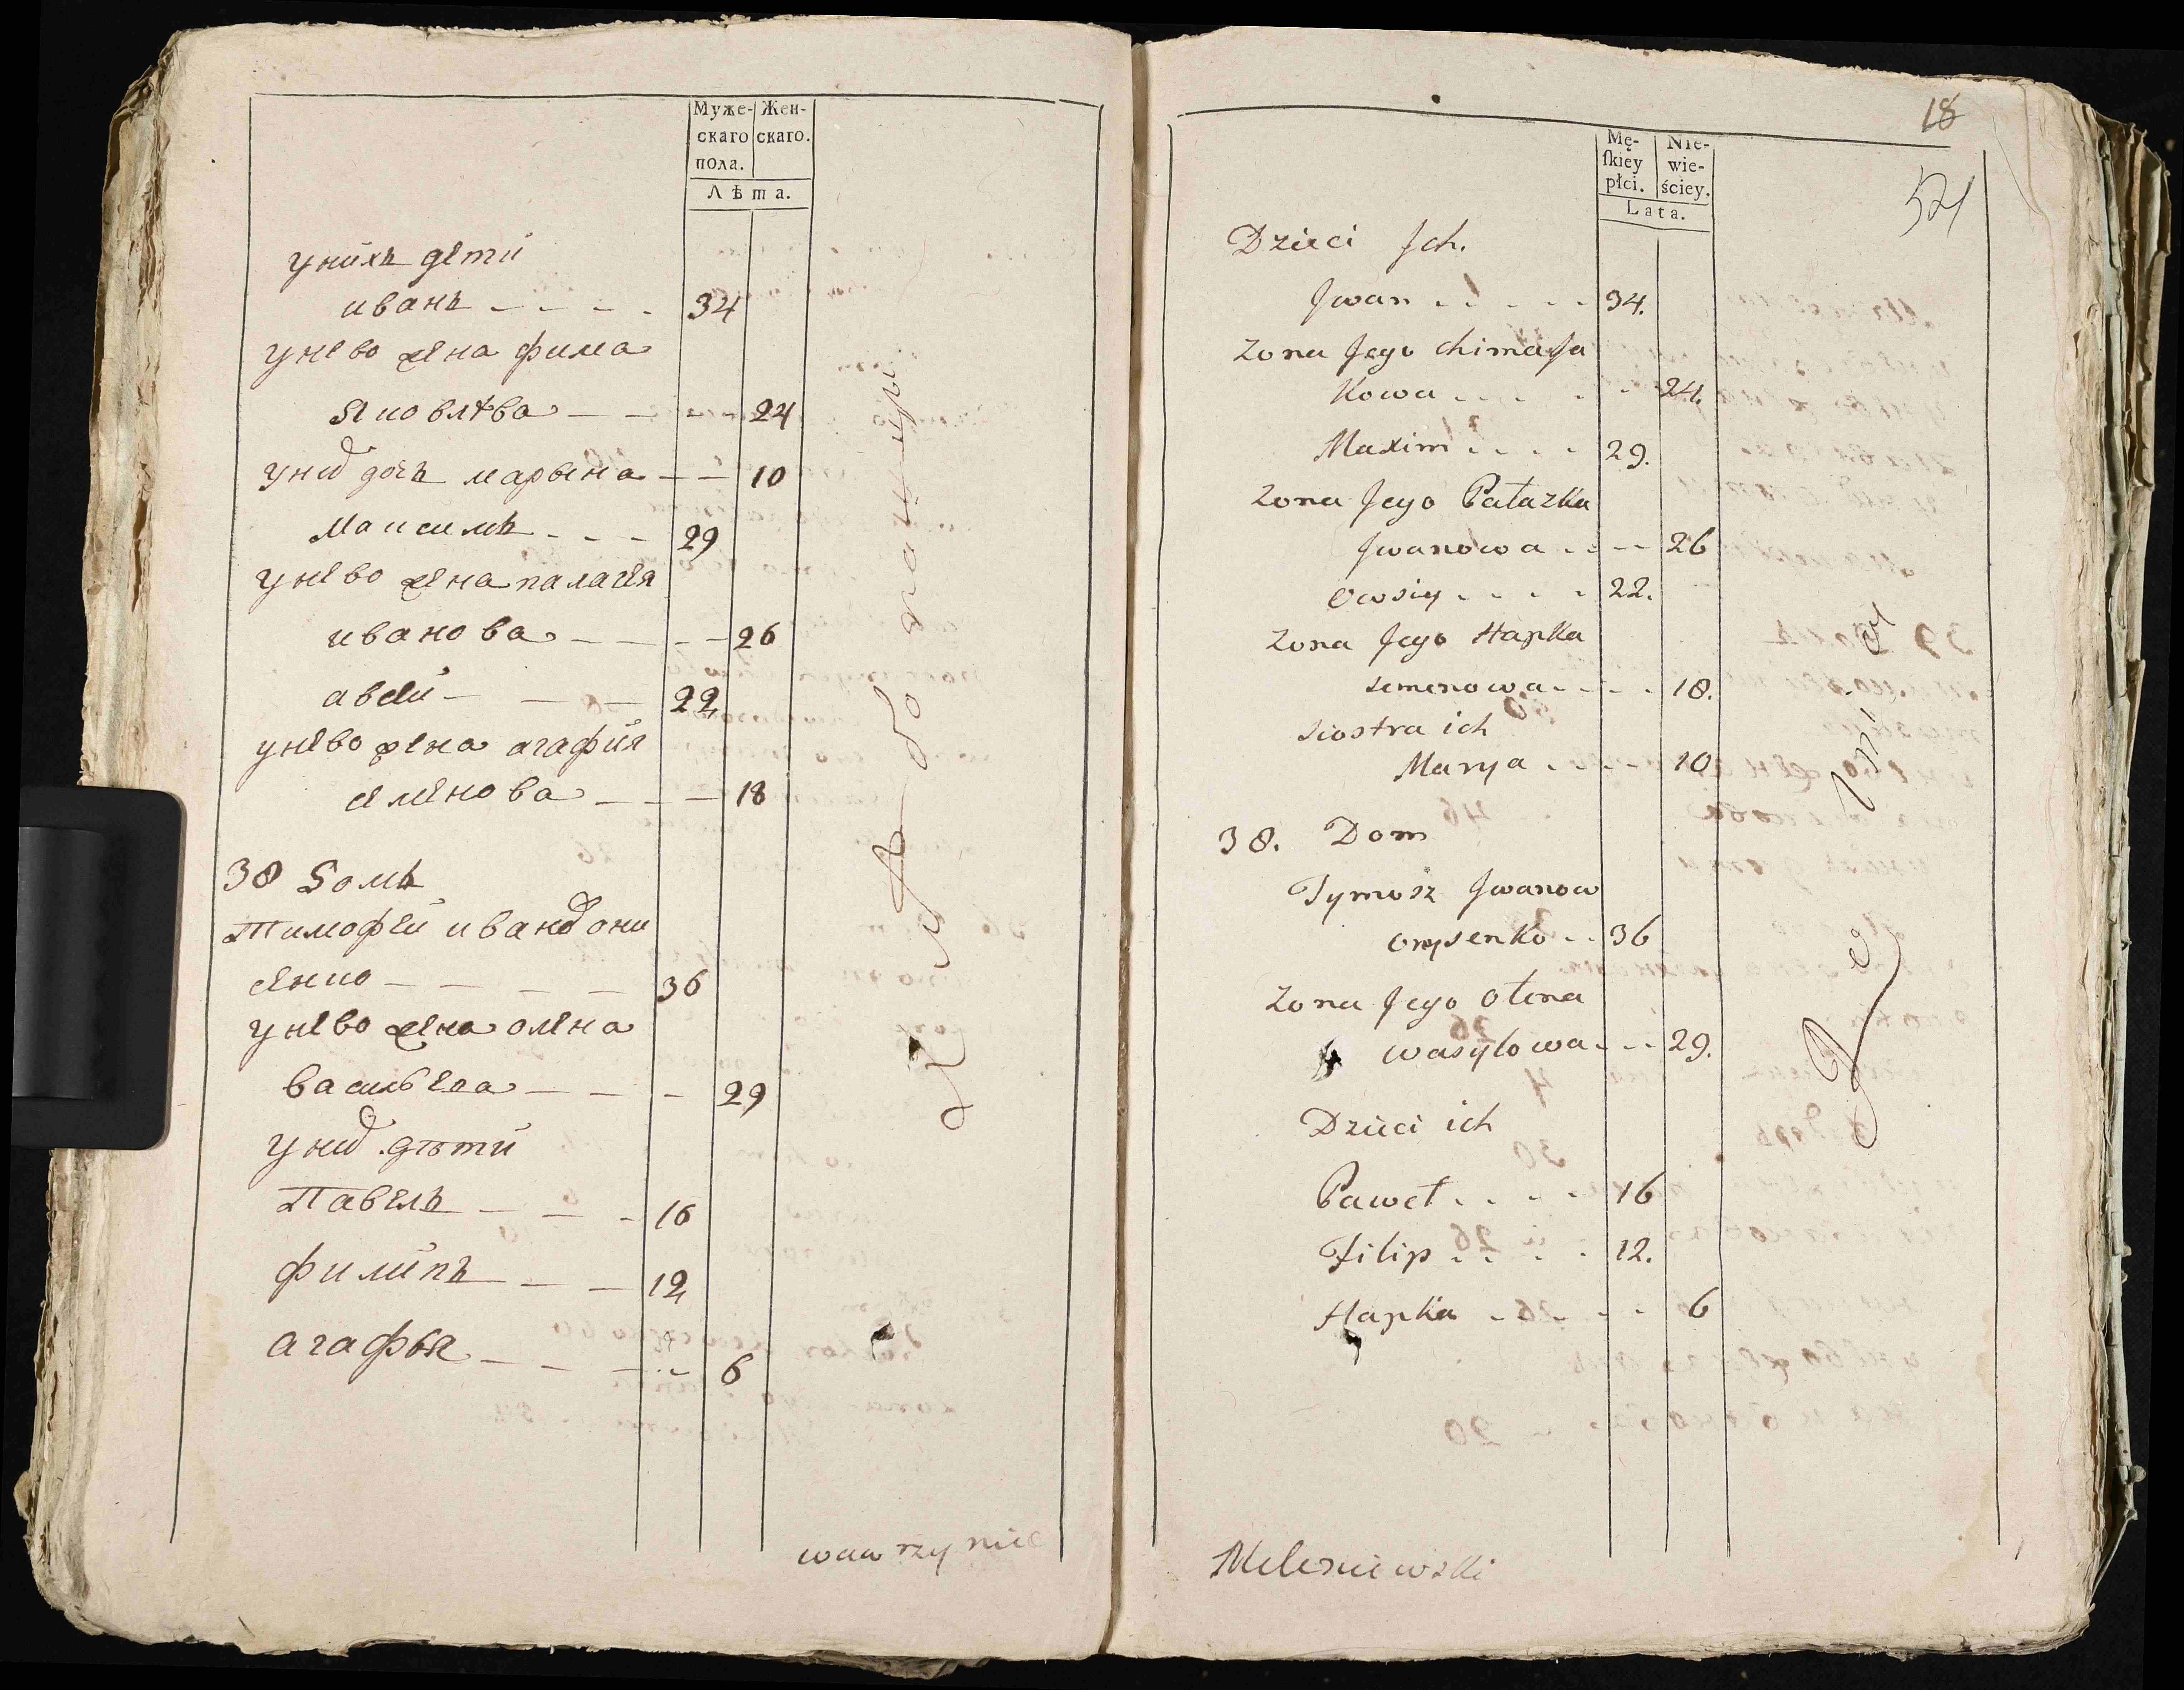 Муже-
скаго
пола.
Жен-
скаго.
Лѣта.
унихъ дети
иванъ - - - - 34
унево жена фима
яковлѣва - - - - 24
унид дочъ марьина - - 10
Максимъ - - - 29
унево жена палагея
иванова - - - - 26
авсей - - - 22
унево жена агафия
семенова - - - 18
38 Домъ
Тимофей иванов они
сенко - - - - 36
унево жена олена
васильева - - - 29
унид дѣти
Павелъ - - - 16
филипъ - - - 12
агафья - - - - 6
wawrzyniec
18
521
Mę-
skiey
płci.
Nie-
wie-
ściey.
Lata.
Dzieci Jch.
Jwan . . . . . 34.
Zona Jego Chima Ja
Kowa . . . . . 24.
Maxim . . . . 29.
Zona Jego Pałazka
Jwanowa . . - - 26
Owsiy . . . . 22.
Zona Jego Hapka
semenowa - - - . 18.
siostra ich
Marya . . . - - 10
38. Dom
Tymosz Jwanow
onysenko . . 36
Zona Jego Ołena
wasylowa . - - 29.
Dzieci ich
Paweł . . . . 16
Filip . . . . 12.
Hapka . . . . . 6
Meleniewski